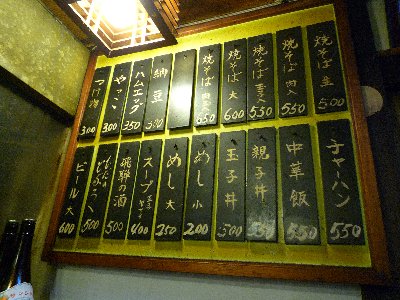 焼そば 並 500
焼そば 肉入 550
焼そば 玉子入 550
焼そば 大 600
焼そば 650
納豆
ハムエッグ 350
やっこ 300
つけ物 300
チャーハン 550
中華飯 550
親子丼 550
玉子丼 500
めし 小 200
めし 大 250
スープ 400
飛騨の酒 500
500
ビール 大 600